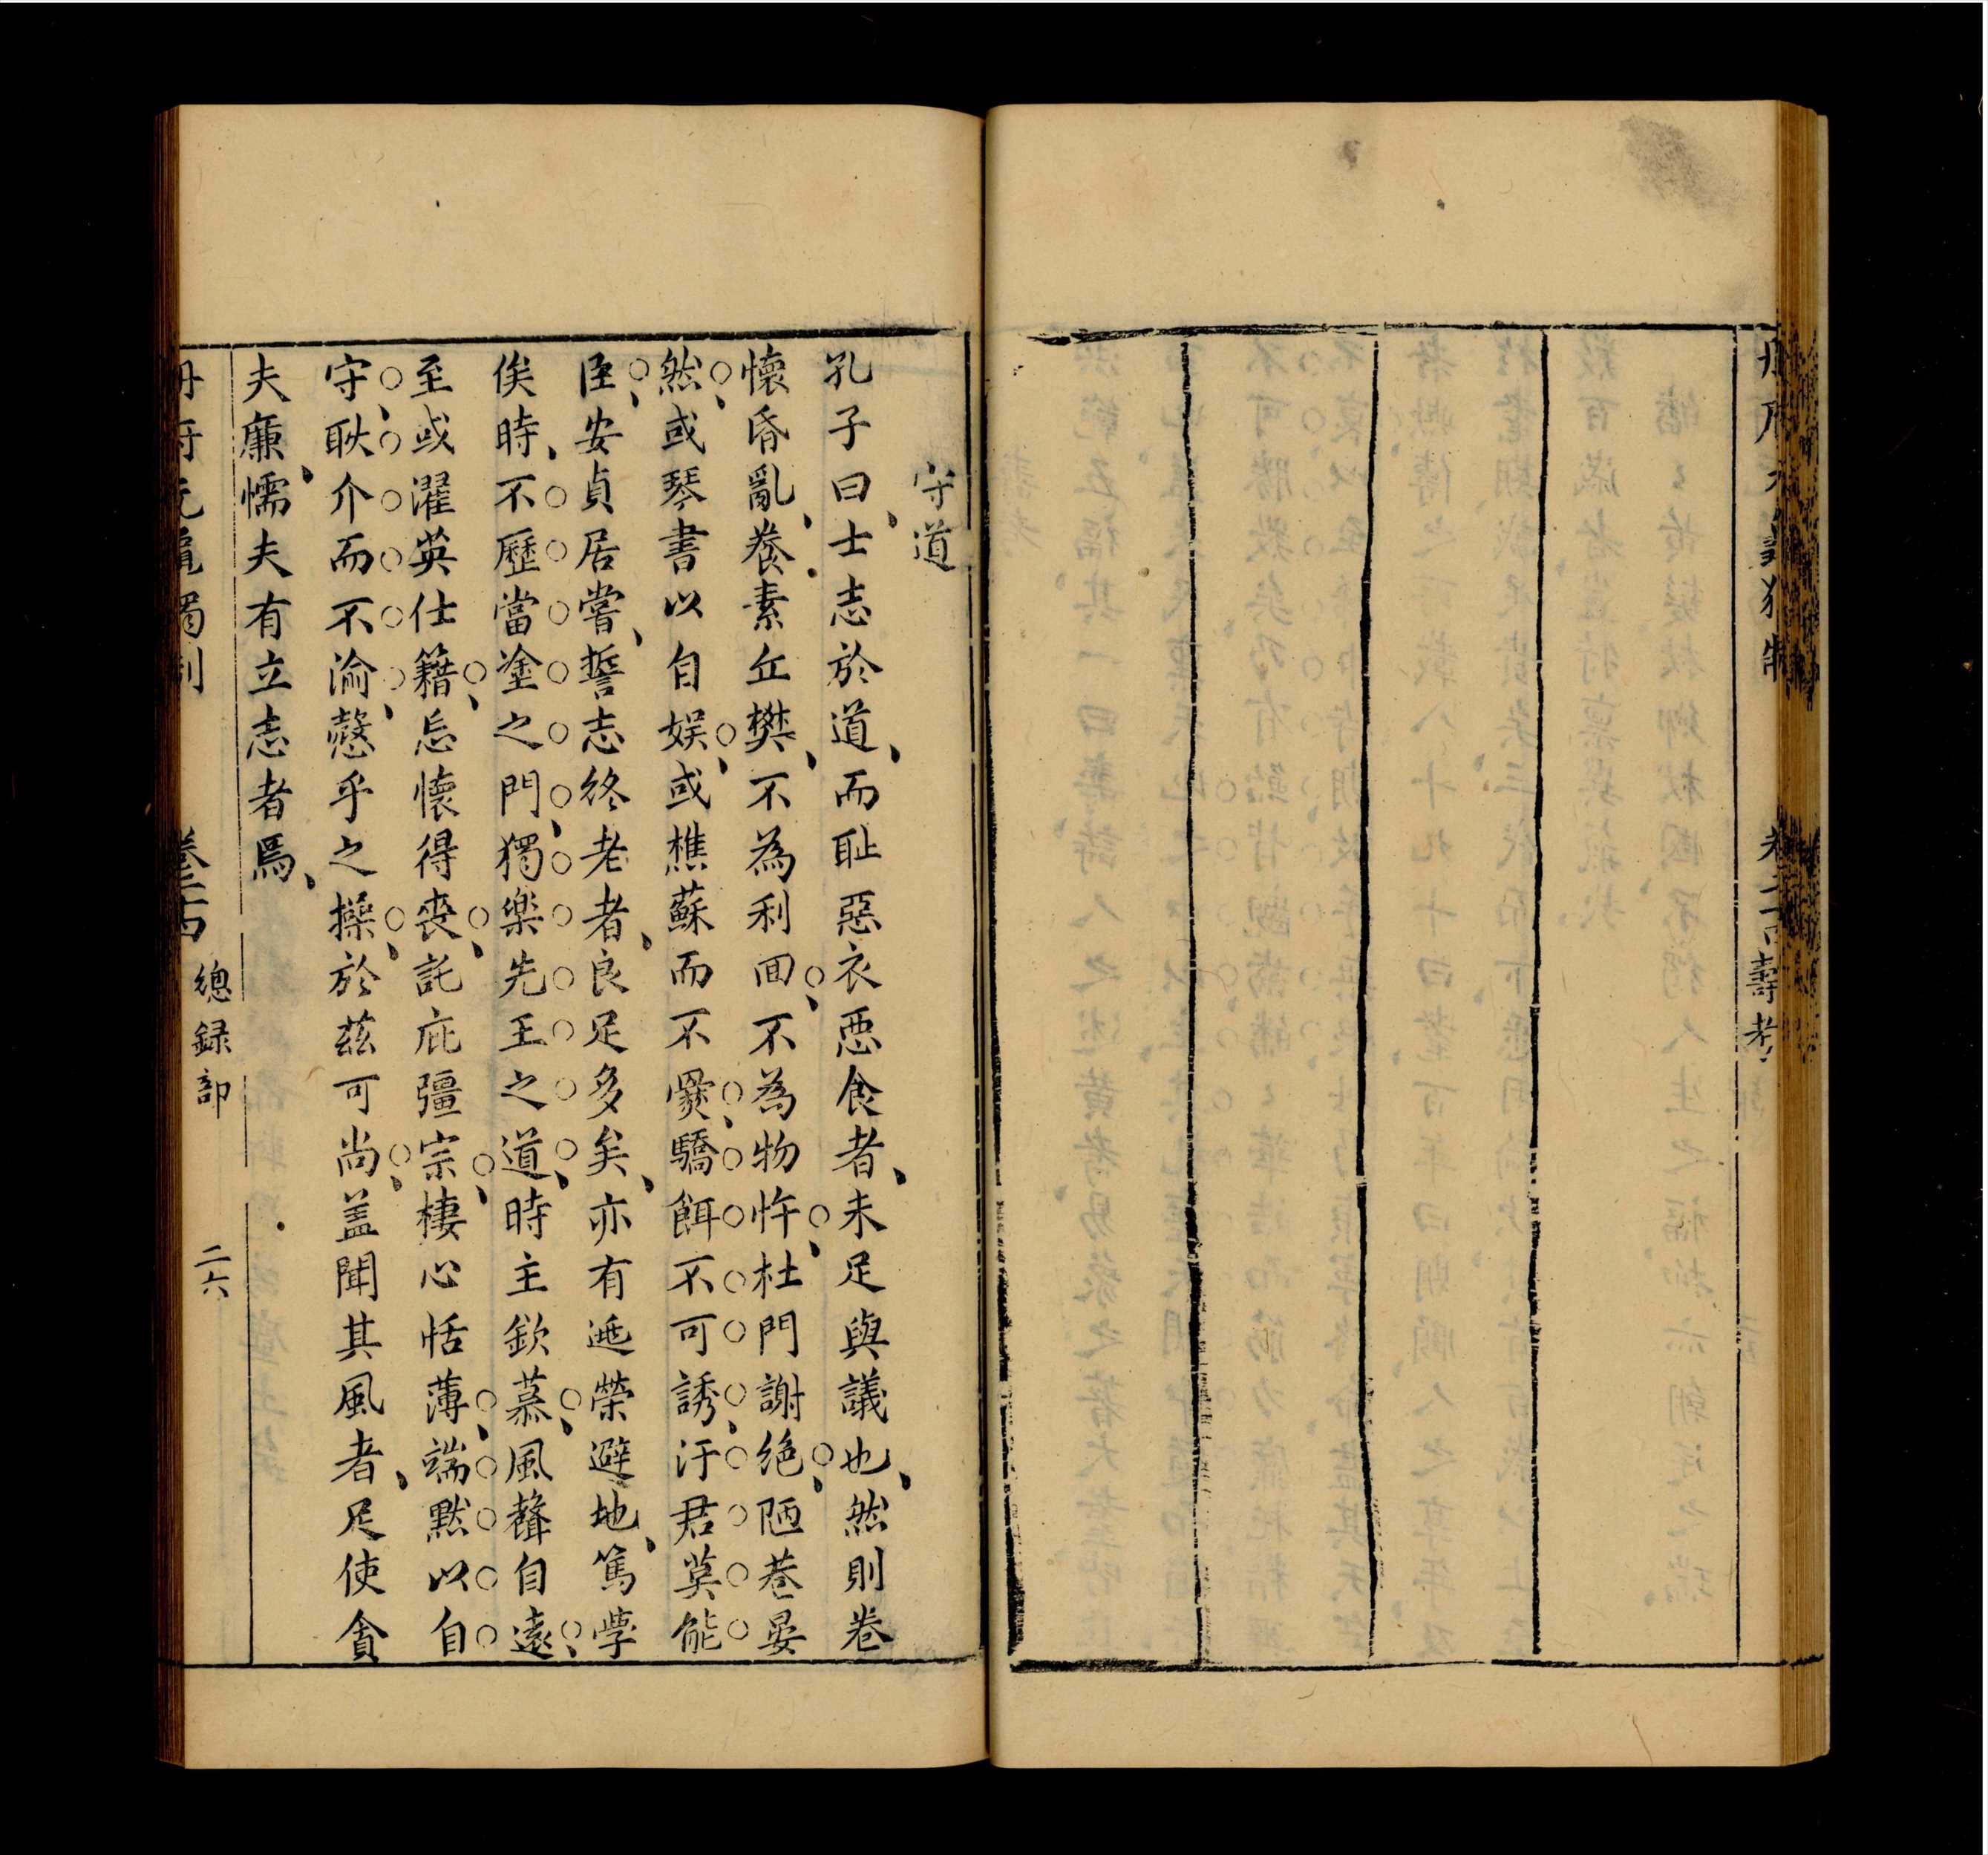 壽考
守道
孔子曰士志於道而耻惡衣惡食者未足與議也然則卷
懷昏亂養素丘樊不為利回不為物忤杜門謝絕陋巷晏
然或琴書以自娛或樵蘇而不爨驕餌不可誘汙君莫能
臣安貞居嘗誓志終老者良足多矣亦有遯榮避地篤學
俟時不歷當塗之門獨樂先王之道時主欽慕風聲自遠
至或濯英仕籍忘懷得喪託庇彊宗棲心恬薄端默以自
守耿介而不渝慤乎之操於茲可尚盖聞其風者足使貪
夫廉懦夫有立志者焉
冊府元龜獨制 卷二十四 總録部 二六